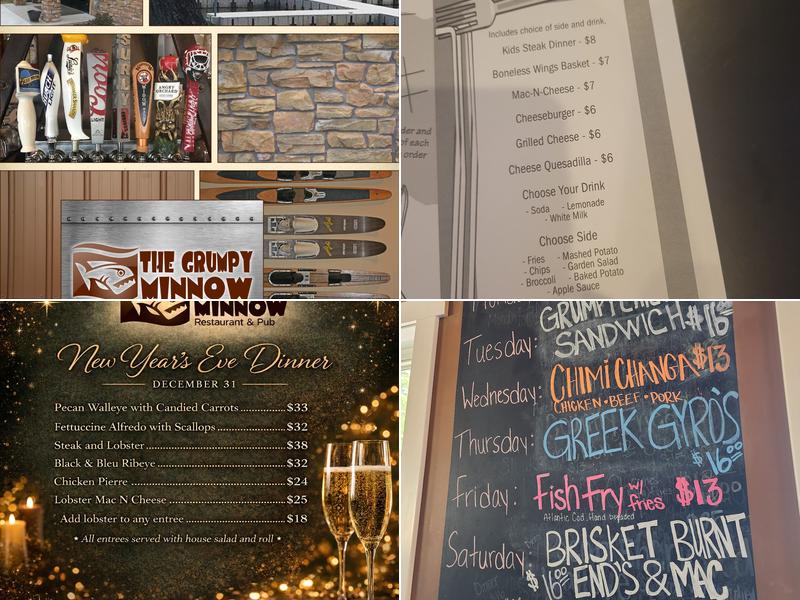 Coors
ANGRY
ORCHARD
THE GRUMPY
MINNOW
Includes choice of side and drink.
Kids Steak Dinner - $8
Boneless Wings Basket - $7
Mac-N-Cheese - $7
Cheeseburger - $6
Grilled Cheese - $6
Cheese Quesadilla - $6
Choose Your Drink
- Soda - Lemonade
- White Milk
Choose Side
- Fries - Mashed Potato
- Chips - Garden Salad
- Broccoli - Baked Potato
- Apple Sauce
der and
of each
order
MINNOW
Restaurant & Pub
New Year's Eve Dinner
DECEMBER 31
Pecan Walleye with Candied Carrots $33
Fettuccine Alfredo with Scallops $32
Steak and Lobster $38
Black & Bleu Ribeye $32
Chicken Pierre $24
Lobster Mac N Cheese $25
Add lobster to any entree $18
* All entrees served with house salad and roll *
Tuesday:
SANDWICH $16
Wednesday:
CHIMICHANGA $13
CHICKEN • BEEF • PORK
Thursday:
GREEK GYRO'S
$16.00
Friday:
Fish Fry w/ fries $13
Atlantic Cod, Hand breaded
Saturday:
BRISKET BURNT
$16.00 END'S & MAC